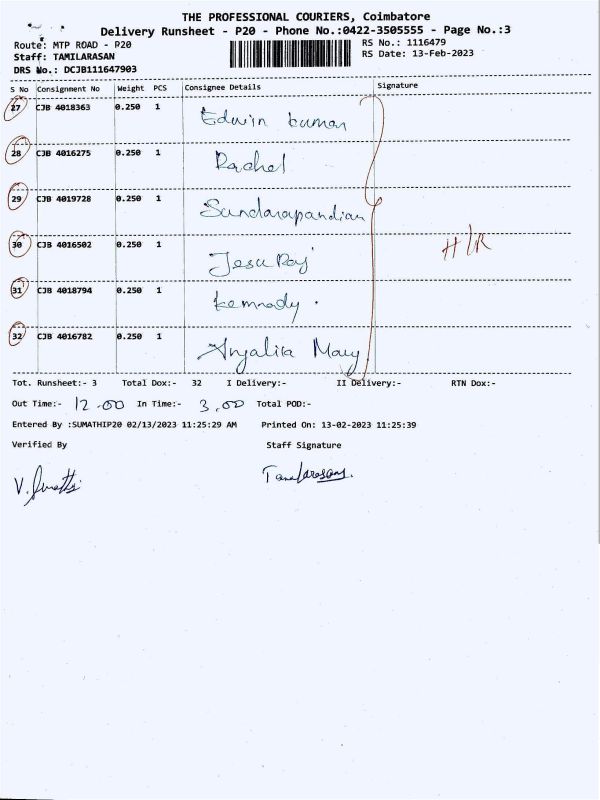 THE PROFESSIONAL COURIERS, Coimbatore
Delivery Runsheet - P20 - Phone No.:0422-3505555 - Page No.:3
Route: MTP ROAD - P20 RS No.: 1116479
Staff: TAMILARASAN RS Date: 13-Feb-2023
DRS No.: DCJB111647903
S No Consignment No Weight PCS Consignee Details Signature
27 CJB 4018363 0.250 1 Edwin kumar
28 CJB 4016275 0.250 1 Rachel
29 CJB 4019728 0.250 1 Sundarapandian
30 CJB 4016502 0.250 1 Jesu Raj H/R
31 CJB 4018794 0.250 1 kennady .
32 CJB 4016782 0.250 1 Anjalika Mary
Tot. Runsheet:- 3 Total Dox:- 32 I Delivery:- II Delivery:- RTN Dox:-
Out Time:- 12.00 In Time:- 3.00 Total POD:-
Entered By :SUMATHIP20 02/13/2023 11:25:29 AM Printed On: 13-02-2023 11:25:39
Verified By Staff Signature
V. Sumathi Tamilarasan.